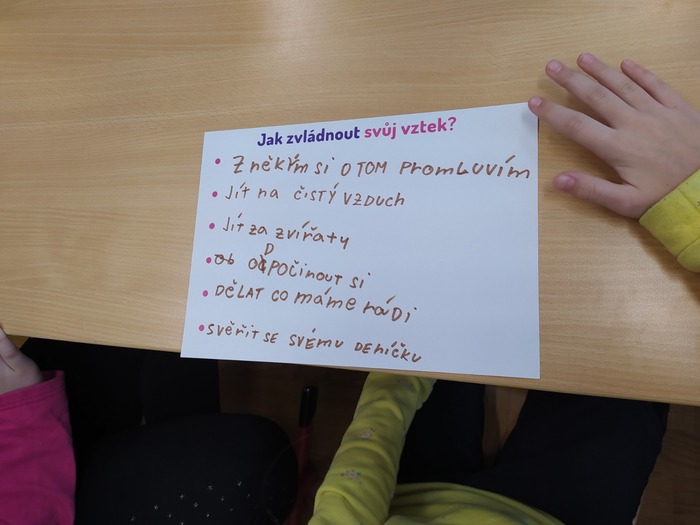 Jak zvládnout svůj vztek?
• Z někým si o TOM PromLuvím
• Jít na čistý vzduch
• Jít za zvířaty
• odpočinout si
• DĚLAT co máme rádi
• svěřit se svému deníčku